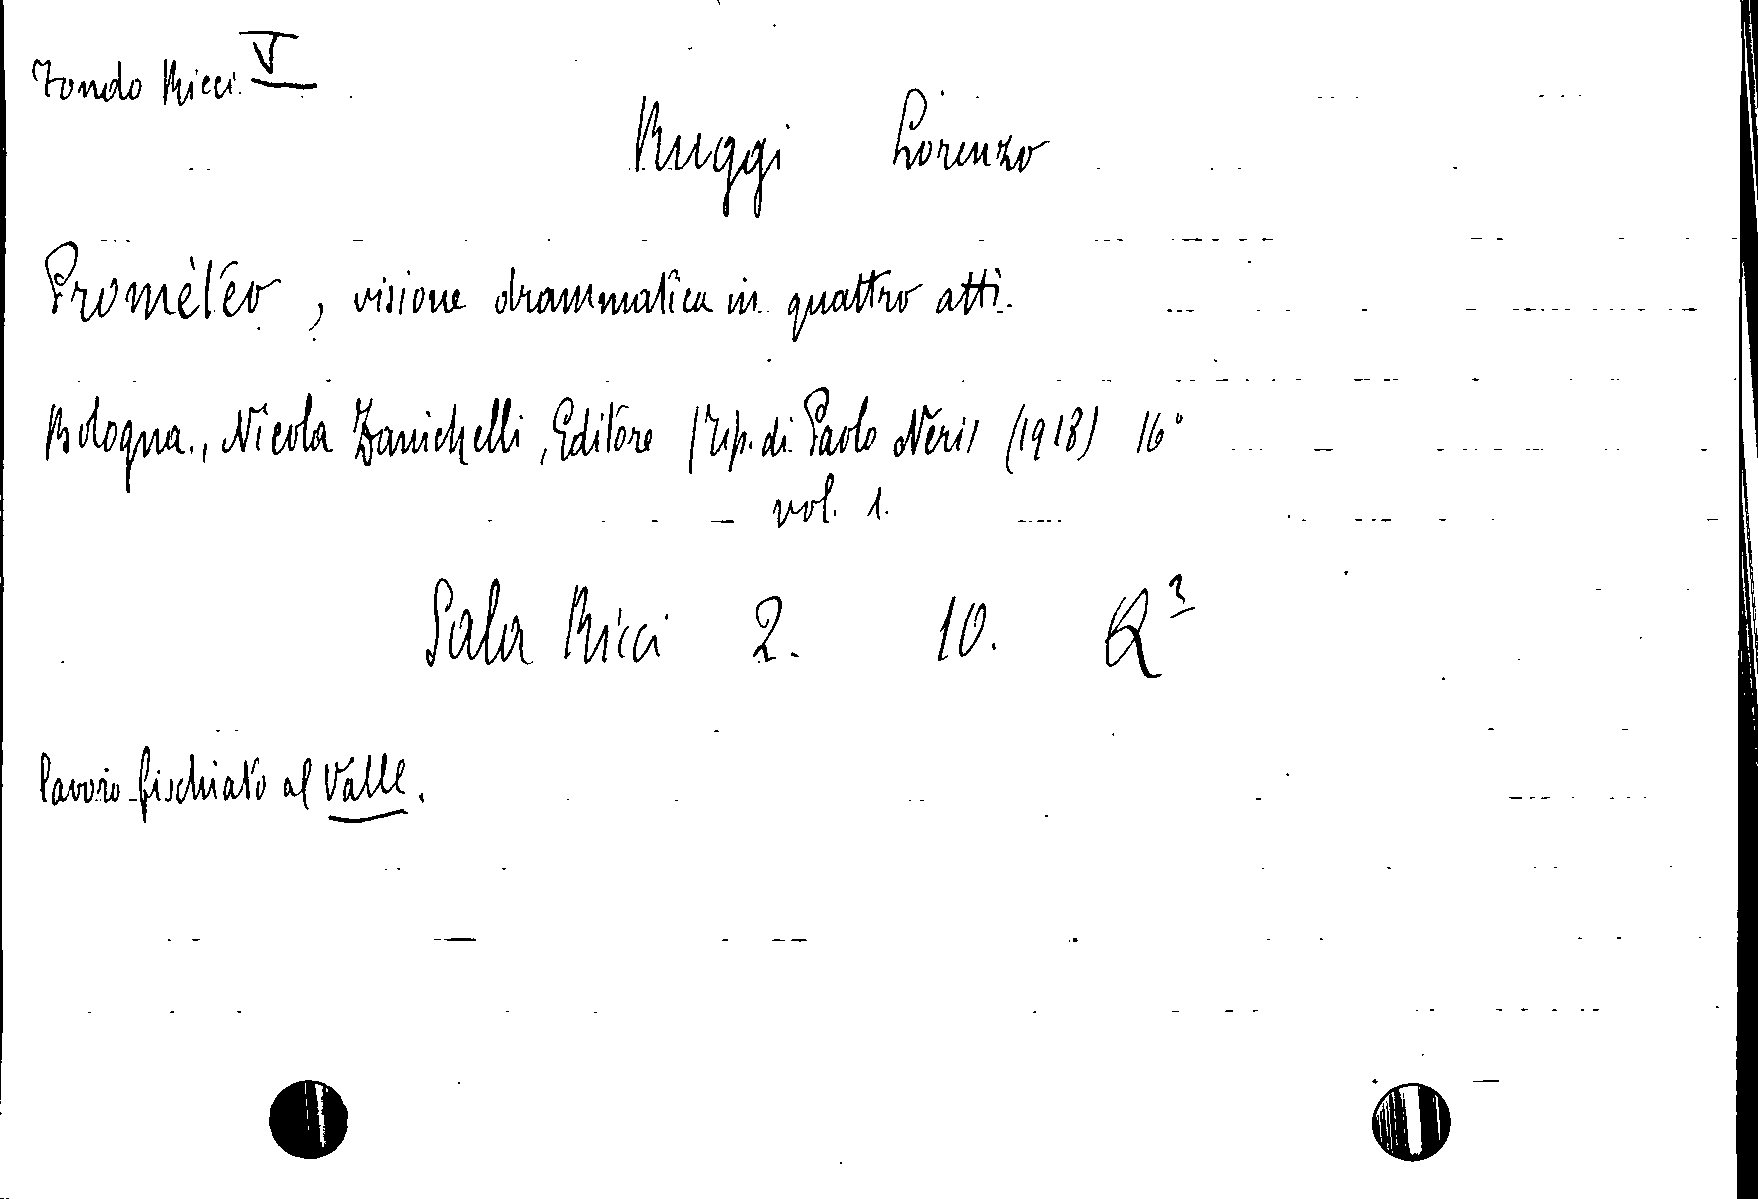 Fondo Ricci V
Ruggi Lorenzo
Promèteo, visione drammatica in quattro atti.
Bologna., Nicola Zanichelli, Editore (Tip. di Paolo Neri) (1918) 16°
vol. 1.
Sala Ricci 2. 10. R³
lavoro fischiato al Valle.